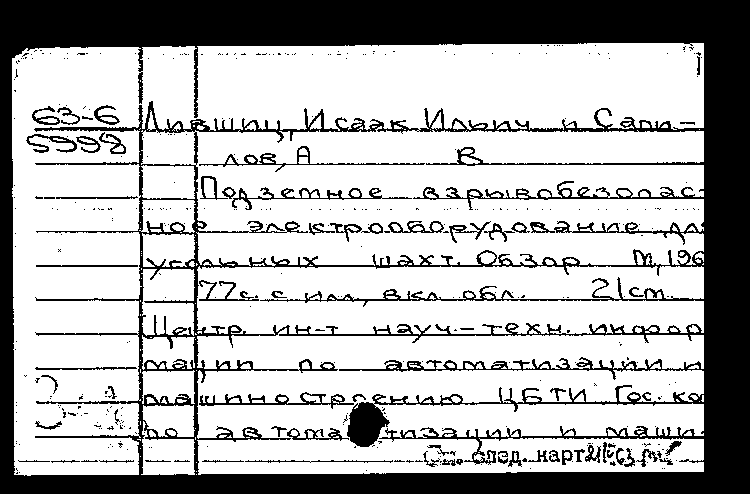 63-6
5998
Лившиц, Исаак Ильич и Сапи-
лов, А В
Подземное взрывобезопас-
ное электрооборудование для
угольных шахт. Обзор. М, 196
77с. с илл, вкл обл. 21cm
Центр. ин-т науч.-техн. инфор
мации по автоматизации и
машиностроению ЦБТИ Гос. ко
по автоматизации и маши-
См. след. карт